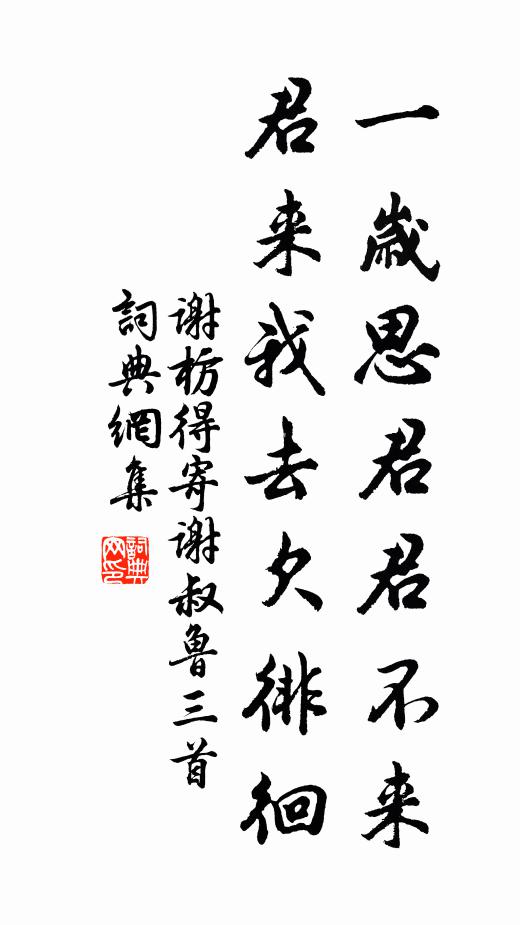 一歲思君君不来
君来我去欠徘徊
谢枋得寄谢叔鲁三首
詞典網集
詞典
网印